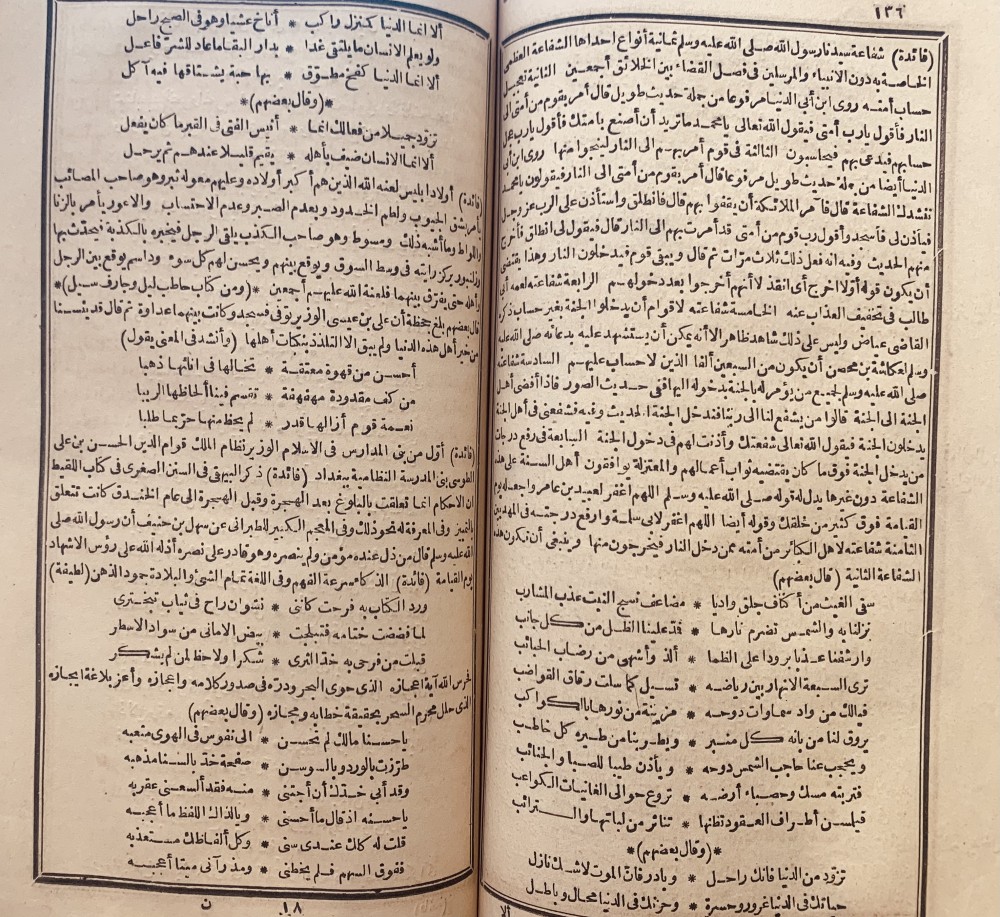 ١٣٦
(فائدة) شفاعة سيدنا رسول الله صلى الله عليه وسلم ثمانية أنواع احداها الشفاعة العظمى
الخاصة به دون الانبياء والمرسلين فى فصل القضاء بين الخلائق أجمعين الثانية تعجيل
حساب أمته روى ابن أبى الدنيا مرفوعا من جملة حديث طويل قال أمر بقوم من أمتى الى
النار فأقول يارب أمتى فيقول الله تعالى يا محمد ما تريد أن أصنع بامتك فأقول يارب عجل
حسابهم فيدعى بهم فيحاسبون الثالثة فى قوم أمر بهم الى النار لينجوا منها روى ابن أبى
الدنيا أيضا من جملة حديث طويل مرفوعا قال أمر بقوم من أمتى الى النار فيقولون يا محمد
ننشدك الشفاعة قال فآمر الملائكة أن يقفوا بهم قال فأنطلق وأستأذن على الرب عز وجل
فيأذن لى فأسجد وأقول رب قوم من أمتى قد أمرت بهم الى النار قال فيقول لى انطلق فأخرج
منهم الحديث وفيه انه فعل ذلك ثلاث مرات ثم قال ويبقى قوم فيدخلون النار وهذا يقتضى
أن يكون قوله أولا اخرج أى انقذ لا أنهم أخرجوا بعد دخولهم الرابعة شفاعته لعمه أبى
طالب فى تخفيف العذاب عنه الخامسة شفاعته لاقوام أن يدخلوا الجنة بغير حساب ذكره
القاضى عياض وليس على ذلك شاهد ظاهر الا أنه يمكن أن يستشهد عليه بدعائه صلى الله عليه
وسلم لعكاشة بن محصن أن يكون من السبعين ألفا الذين لا حساب عليهم السادسة شفاعته
صلى الله عليه وسلم لجميع من يؤمر له بالجنة بدخوله اليها ففى حديث الصور فاذا أفضى أهل
الجنة الى الجنة قالوا من يشفع لنا الى ربنا فندخل الجنة الحديث وفيه فشفعنى فى أهل الجنة
يدخلون الجنة فيقول الله تعالى شفعتك وأذنت لهم فى دخول الجنة السابعة فى رفع درجات
من يدخل الجنة فوق ما كان يقتضيه ثواب أعمالهم والمعتزلة يوافقون أهل السنة على هذه
الشفاعة دون غيرها يدل له قوله صلى الله عليه وسلم اللهم اغفر لعبيد بن عامر واجعله يوم
القيامة فوق كثير من خلقك وقوله أيضا اللهم اغفر لابى سلمة وارفع درجته فى المهديين
الثامنة شفاعته لاهل الكبائر من أمته ممن دخل النار فيخرجون منها وينبغى أن تكون هذه
الشفاعة الثانية (قال بعضهم)
سقى الغيث من أكناف جلق واديا * مضاعف نسج النبت عذب المشارب
نزلنا به والشمس تضرم نارها * فمد علينا الظل من كل جانب
وارشفنا عذبا برودا على الظما * ألذ وأشهى من رضاب الحبائب
ترى السبعة الانهار بين رياضه * تسيل كما سلت رقاق القواضب
فيالك من واد سماوات دوحه * مزينة من نورها بالكواكب
يروق لنا من بانه كل منبر * ويطربنا من طيره كل خاطب
ويحجب عنا حاجب الشمس دوحه * ويأذن طيبا للصبا والجنائب
فتربته مسك وحصباء أرضه * تروع حوالى الغانيات الكواعب
فيلمسن أطراف العقود تظنها * تناثر من لباتها والترائب
*(وقال بعضهم)*
تزود من الدنيا فانك راحل * وبادر فان الموت لاشك نازل
حياتك فى الدنيا غرور وحسرة * وحزنك فى الدنيا محال وباطل
ألا
ألا انما الدنيا كمنزل راكب * أناخ عشيا وهو فى الصبح راحل
ولو يعلم الانسان ما يلتقى غدا * بدار البقا ما عاد للشر فاعل
ألا انما الدنيا كفخ مطوق * بها حبة يشتاقها فيه آكل
*(وقال بعضهم)*
تزود جميلا من فعالك انما * أنيس الفتى فى القبر ما كان يفعل
ألا انما الانسان ضيف بأهله * يقيم قليلا عندهم ثم يرحل
(فائدة) أولاد ابليس لعنه الله الذين هم أكبر أولاده وعليهم معوله ثبر وهو صاحب المصائب
يأمر بشق الجيوب ولطم الخدود وبعدم الصبر وعدم الاحتساب والاعور يأمر بالزنا
واللواط وما أشبه ذلك ومسوط وهو صاحب الكذب يلقى الرجل فيخبره بالكذبة فيحدث بها
وزلنبور يركز رايته فى وسط السوق ويوقع بينهم ويحسن لهم كل سوء وداسم يوقع بين الرجل
وأهله حتى يفرق بينهما فلعنة الله عليهم أجمعين *(ومن كتاب حاطب ليل وجارف سيل)*
قال بعضهم بلغ جحظة أن على بن عيسى الوزير توفى فسجد وكانت بينهما عداوة ثم قال قد يئسنا
من خير أهل هذه الدنيا ولم يبق الا التلذذ بنكبات أهلها (وأنشد فى المعنى يقول)
أحسن من قهوة معتقة * تخالها فى انائها ذهبا
من كف مقدودة مهفهفة * تقسم فينا ألحاظها الريبا
نعمة قوم أزالها قدر * لم يحظ منها حر بما طلبا
(فائدة) أول من بنى المدارس فى الاسلام الوزير نظام الملك قوام الدين الحسن بن على
الطوسى بنى المدرسة النظامية ببغداد (فائدة) ذكر البيهقى فى السنن الصغرى فى كتاب اللقيط
ان الاحكام انما تعلقت بالبلوغ بعد الهجرة وقبل الهجرة الى عام الخندق كانت تتعلق
بالتمييز وفى المعرفة له نحو ذلك وفى المعجم الكبير للطبرانى عن سهل بن حنيف أن رسول الله صلى
الله عليه وسلم قال من ذل عنده مؤمن ولم ينصره وهو قادر على نصره أذله الله على رؤس الاشهاد
يوم القيامة (فائدة) الذكاء سرعة الفهم وفى اللغة تمام الشئ والبلادة جمود الذهن (لطيفة)
ورد الكتاب به فرحت كاننى * نشوان راح فى ثياب تبخترى
لما فضضت ختامه فتبلجت * بيض الامانى من سواد الاسطر
قبلت من فرحى به خد الثرى * شكرا ولاحظ لمن لم يشكر
حرس الله آية اعجازه الذى حوى البحر ودره فى صدور كلامه واعجازه وأعز بلاغة ايجازه
الذى حلل محرم السحر بحقيقة خطابه ومجازه (وقال بعضهم)
يا حسنا مالك لم تحسن * الى نفوس فى الهوى متعبه
طرزت بالورد وبالسوسن * صفحة خد بالسنا مذهبه
وقد أبى خدك أن أجتنى * منه فقد ألسعنى عقربه
يا حسنه اذ قال ما أحسنى * ويا لذاك اللفظ ما أعجبه
قلت له كلك عندى سنى * وكل ألفاظك مستعذبه
ففوق السهم فلم يخطنى * ومذ رآنى ميتا أعجبه
١٨ ن